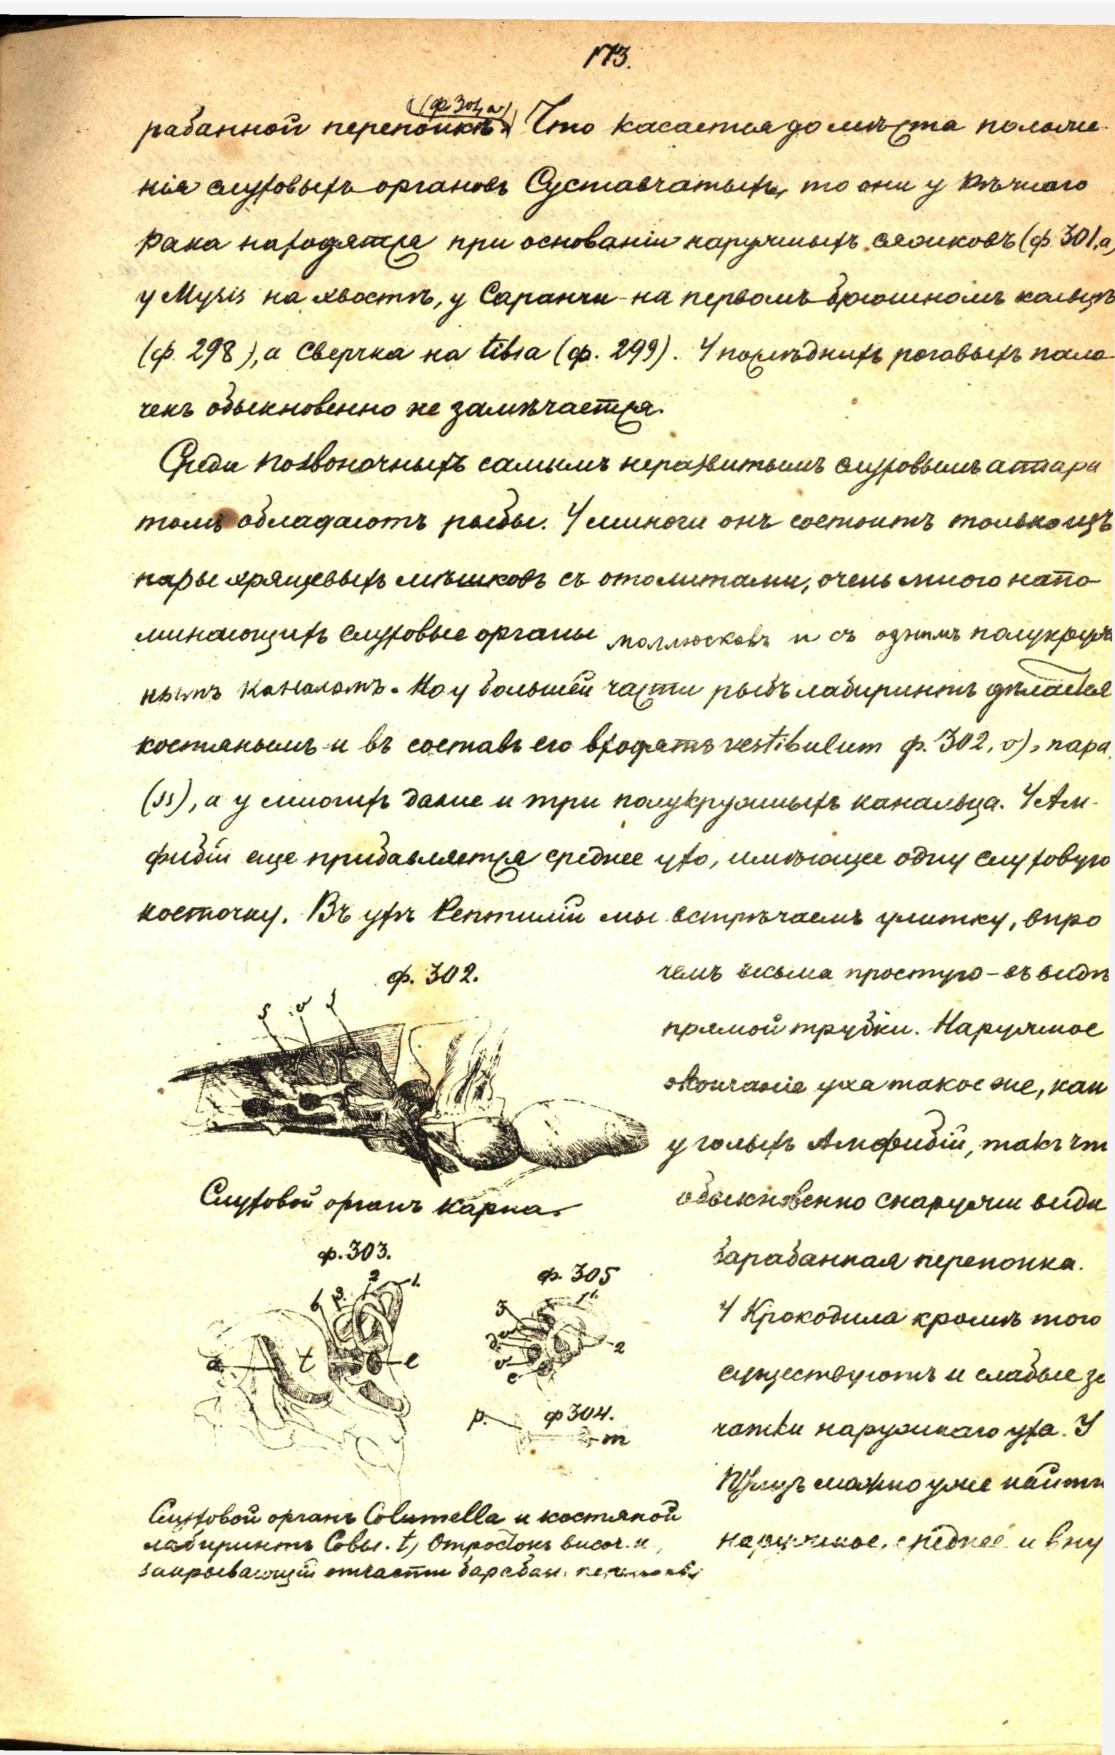 173.
(ф 304, а)
рабанной перепонкѣ. Что касается до мѣста положе-
нія слуховыхъ органовъ Суставчатыхъ, то они у Рѣчного
Рака находятся при основаніи наружныхъ сяжковъ (ф. 301, а)
у Mysis на хвостѣ, у Саранчи на первомъ брюшномъ кольцѣ
(ф. 298), а Сверчка на tibia (ф. 299). У послѣднихъ роговыхъ пало-
чекъ обыкновенно не замѣчается.
Среди позвоночныхъ самымъ неразвитымъ слуховымъ аппара
томъ обладаютъ рыбы. У миноги онъ состоитъ только изъ
пары хрящевыхъ мѣшковъ съ отолитами, очень много напо-
минающихъ слуховые органы моллюсковъ и съ однимъ полукруж
нымъ каналомъ. Но у большей части рыбъ лабиринтъ дѣлается
костянымъ и въ составъ его входятъ vestibulum ф. 302, v), пара
(ss), а у многихъ даже и три полукружныхъ канальца. У Ам-
фибій еще прибавляется среднее ухо, имѣющее одну слуховую
косточку. Въ ухѣ Рептилій мы встрѣчаемъ улитку, впро
чемъ весьма простую - въ видѣ
прямой трубки. Наружное
окончаніе уха такое же, как
у голыхъ Амфибій, такъ чт
обыкновенно снаружи видн
барабанная перепонка.
У Крокодила кромѣ того
существуютъ и слабые за
чатки наружнаго уха. У
Птицъ можно уже найти
наружное, среднее и вну
ф. 302.
s v s
Слуховой органъ карпа.
ф. 303.
6 3 2 1.
a t e
ф. 305
3 1
2
v
c
ф 304.
p. m
Слуховой органъ Columella и костяной
лабиринтъ Совы. t, Отростокъ височ. к.,
закрывающій отчасти барабан. перепонку